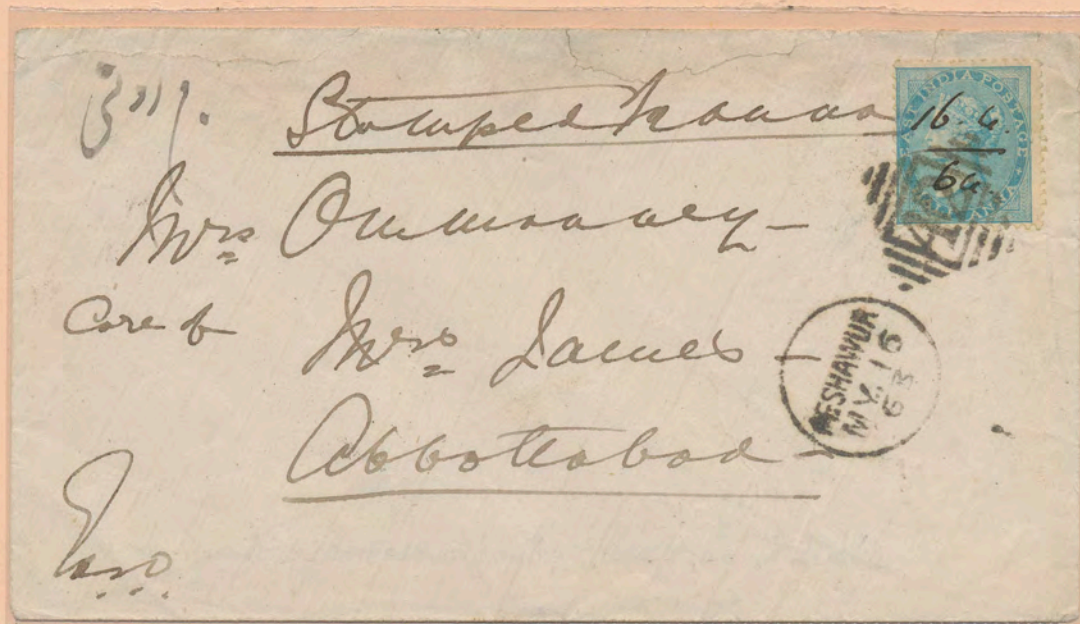 Stamped
EAST INDIA POSTAGE
16 a.
6 a.
Mrs Ommanney
Care of
Mrs James
Abbottabad
PESHAWUR
MY 16
63